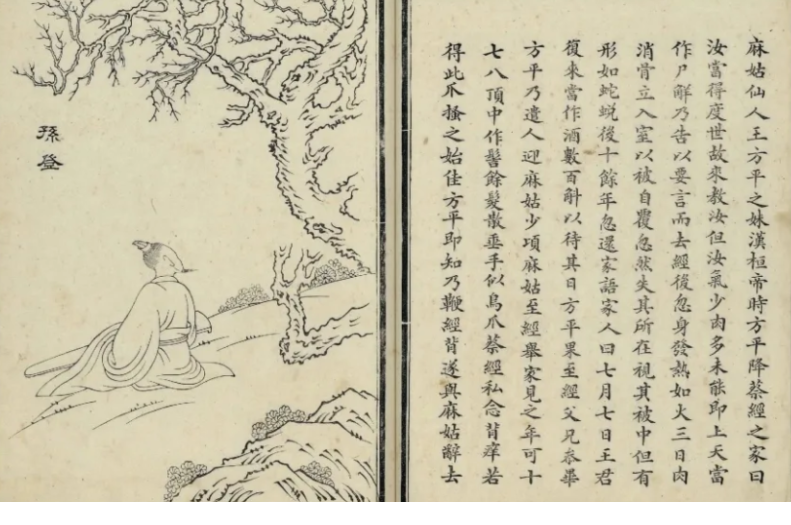 麻姑仙人王方平之妹漢桓帝時方平降蔡經之家曰
汝當得度世故來教汝但汝氣少肉多未能即上天當
作尸解乃告以要言而去經後忽身發熱如火三日肉
消骨立入室以被自覆忽然失其所在視其被中但有
形如蛇蛻後十餘年忽還家語家人曰七月七日王君
復來當作酒數百斛以待其日方平果至經父兄叅畢
方平乃遣人迎麻姑少頃麻姑至經舉家見之年可十
七八頂中作髻餘髮散垂手似鳥爪蔡經私念背痒若
得此爪搔之始佳方平即知乃鞭經背遂與麻姑辭去
孫登